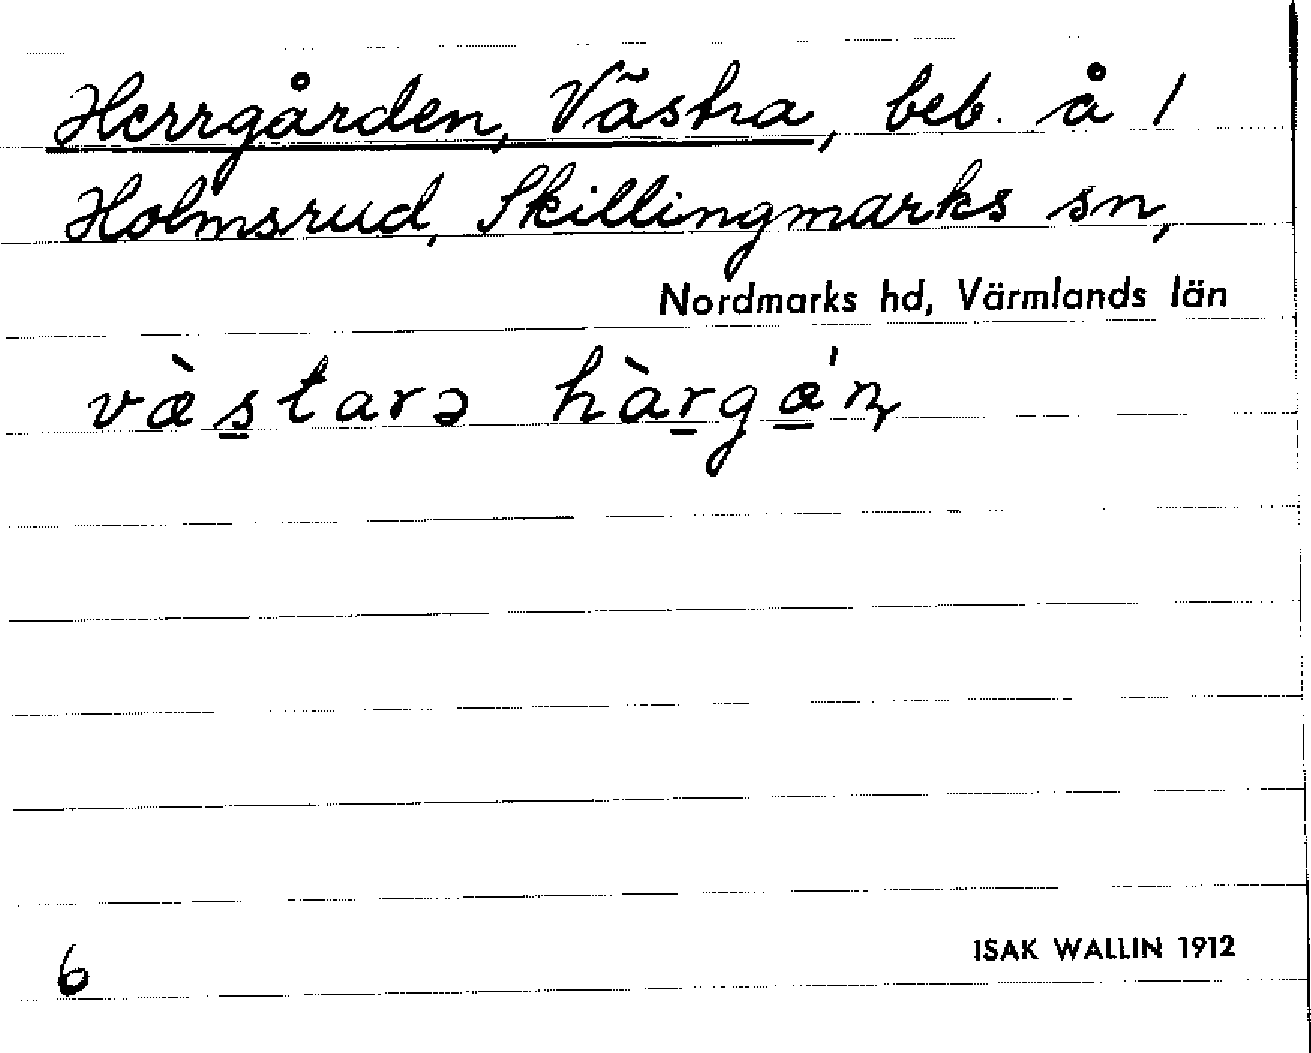 Herrgården, Västra, beb. å 1
Holmsrud, Skillingmarks sn,
Nordmarks hd, Värmlands län
væ̀s̱tarə hàṟgǽ̱ɳ
6
ISAK WALLIN 1912